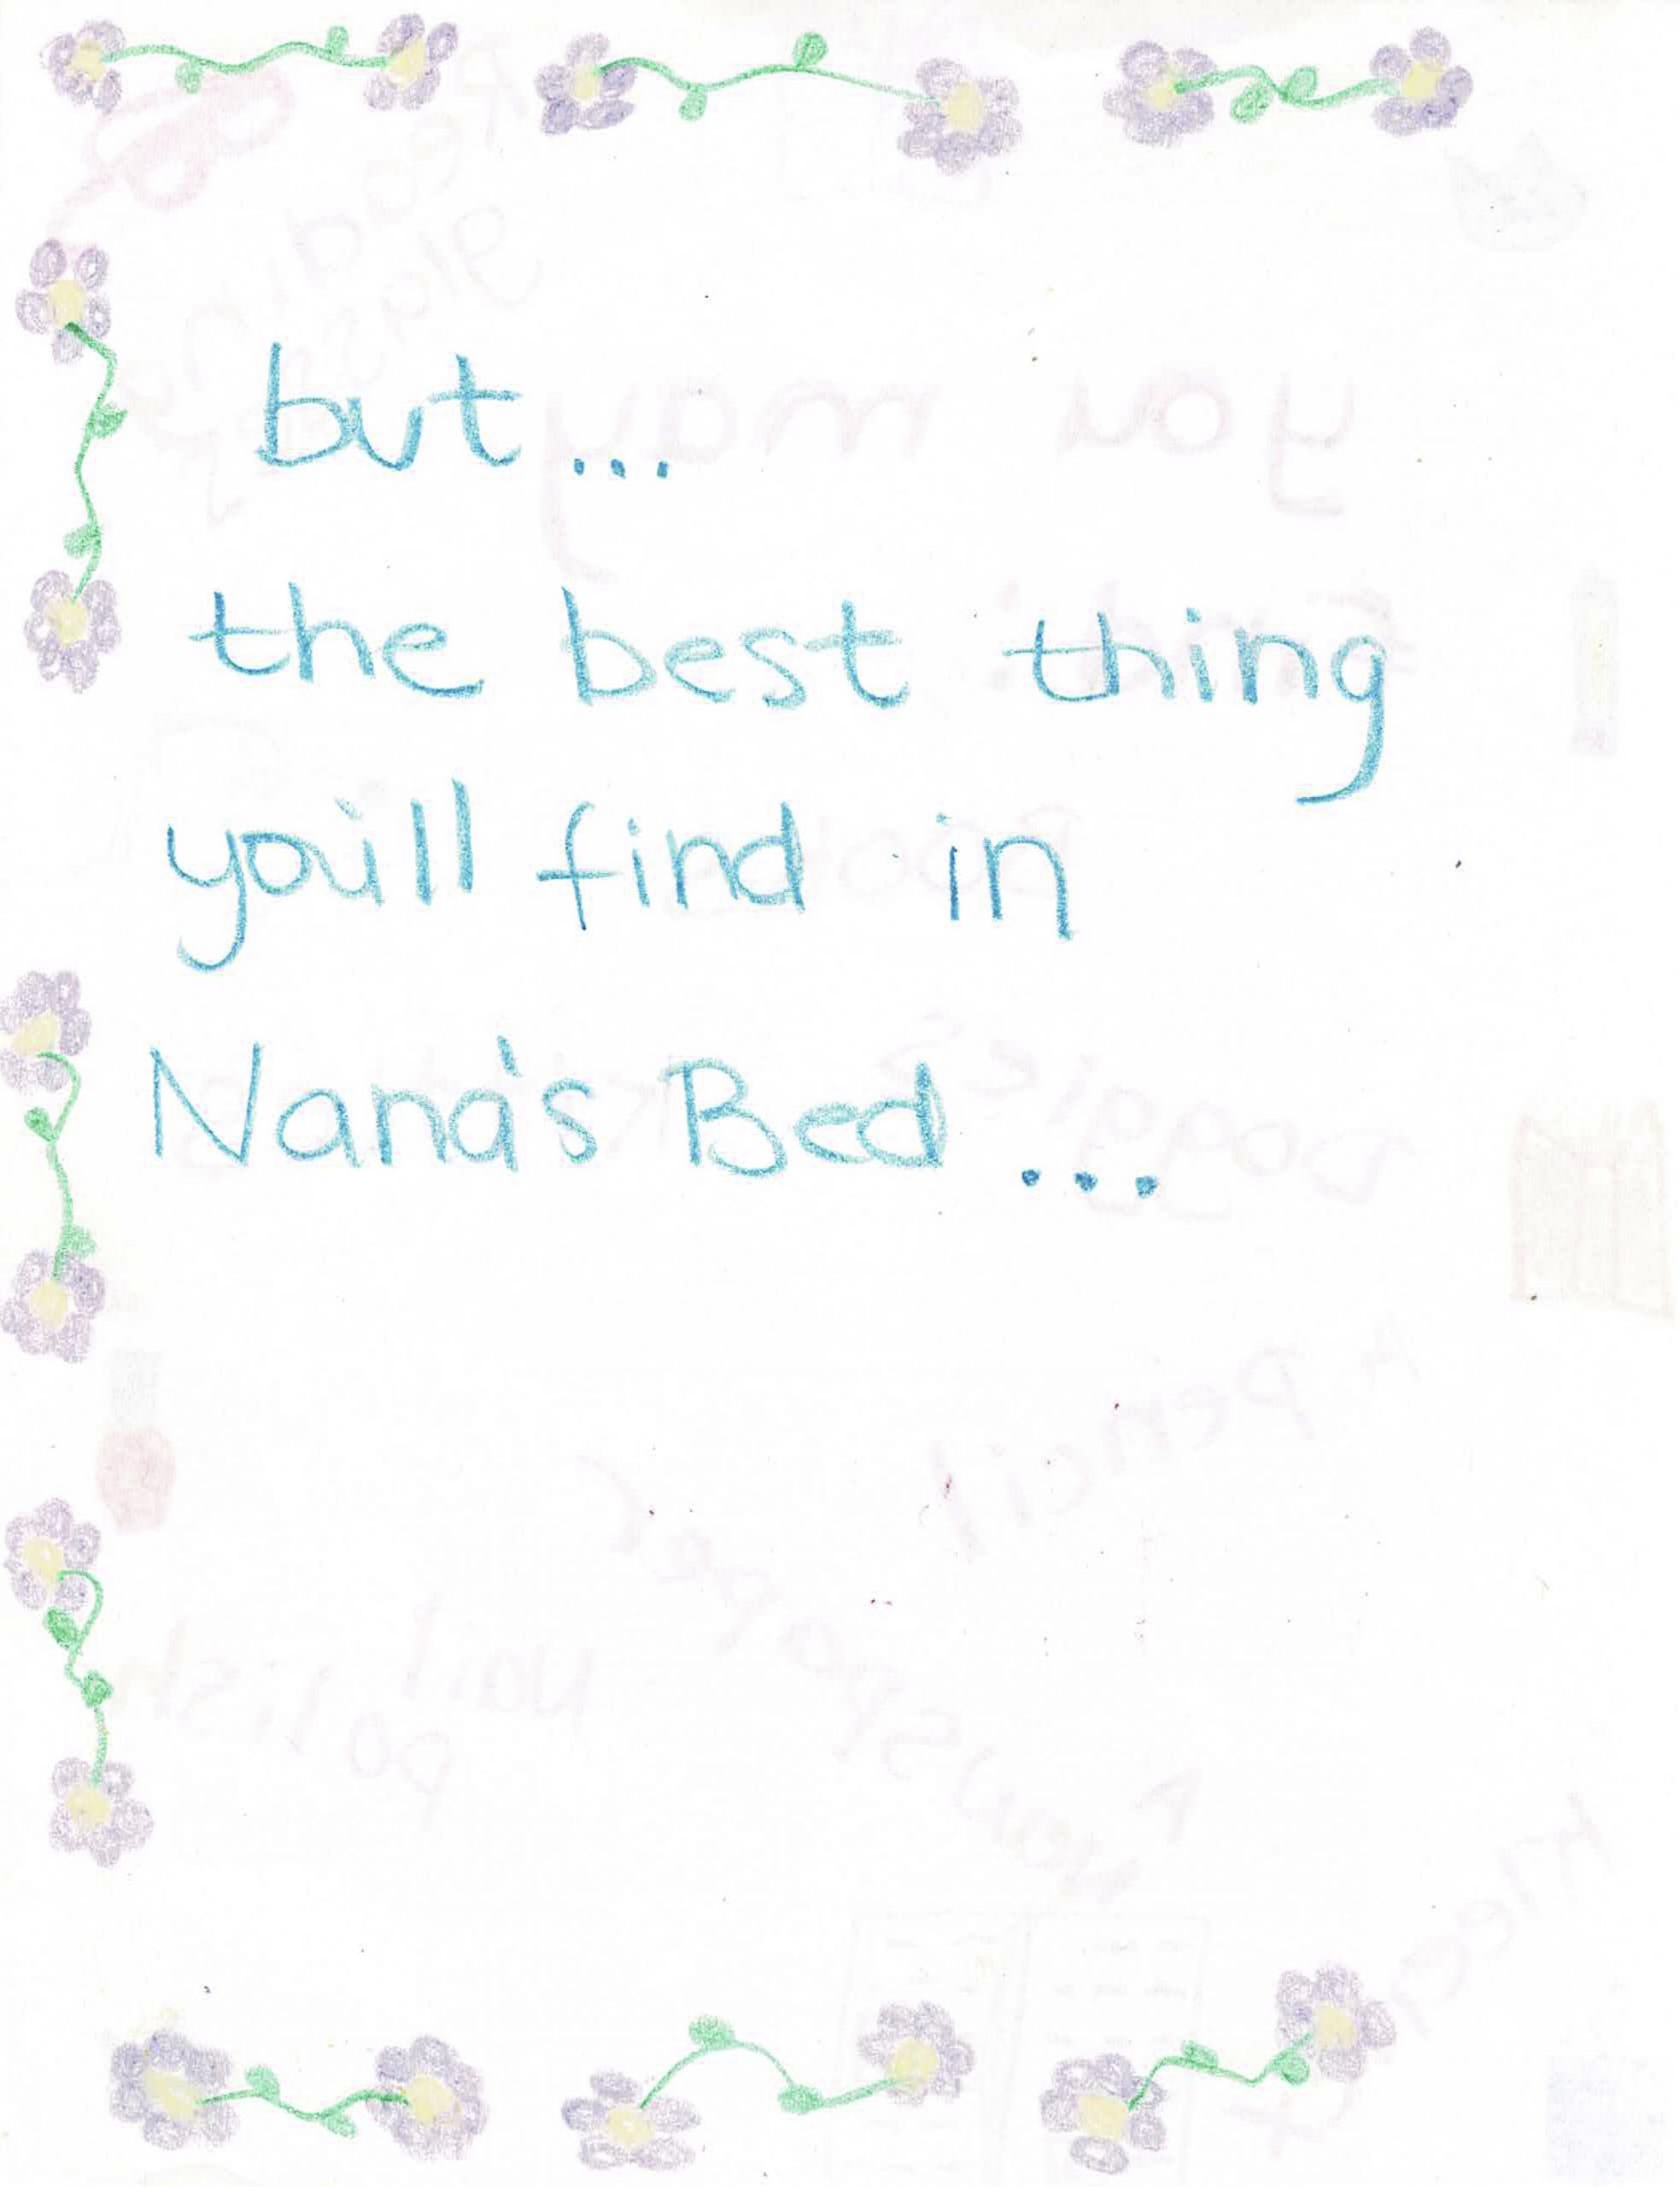 but...
the best thing
you'll find in
Nana's Bed...